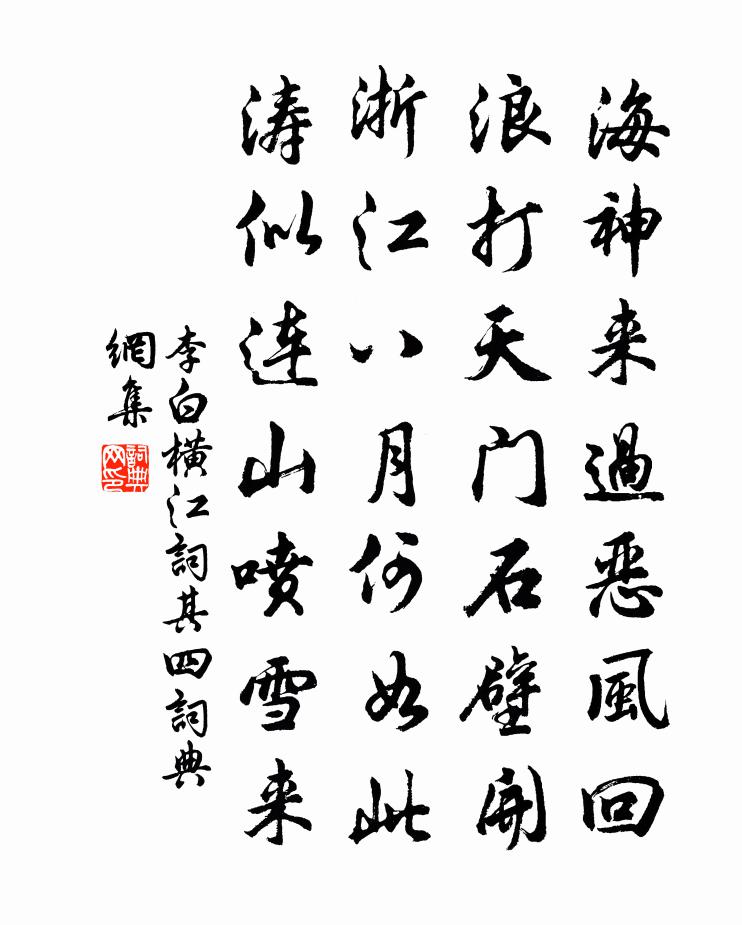 海神来過恶風回
浪打天门石壁開
浙江八月何如此
涛似连山喷雪来
李白横江詞其四詞典
網集
詞典
网印